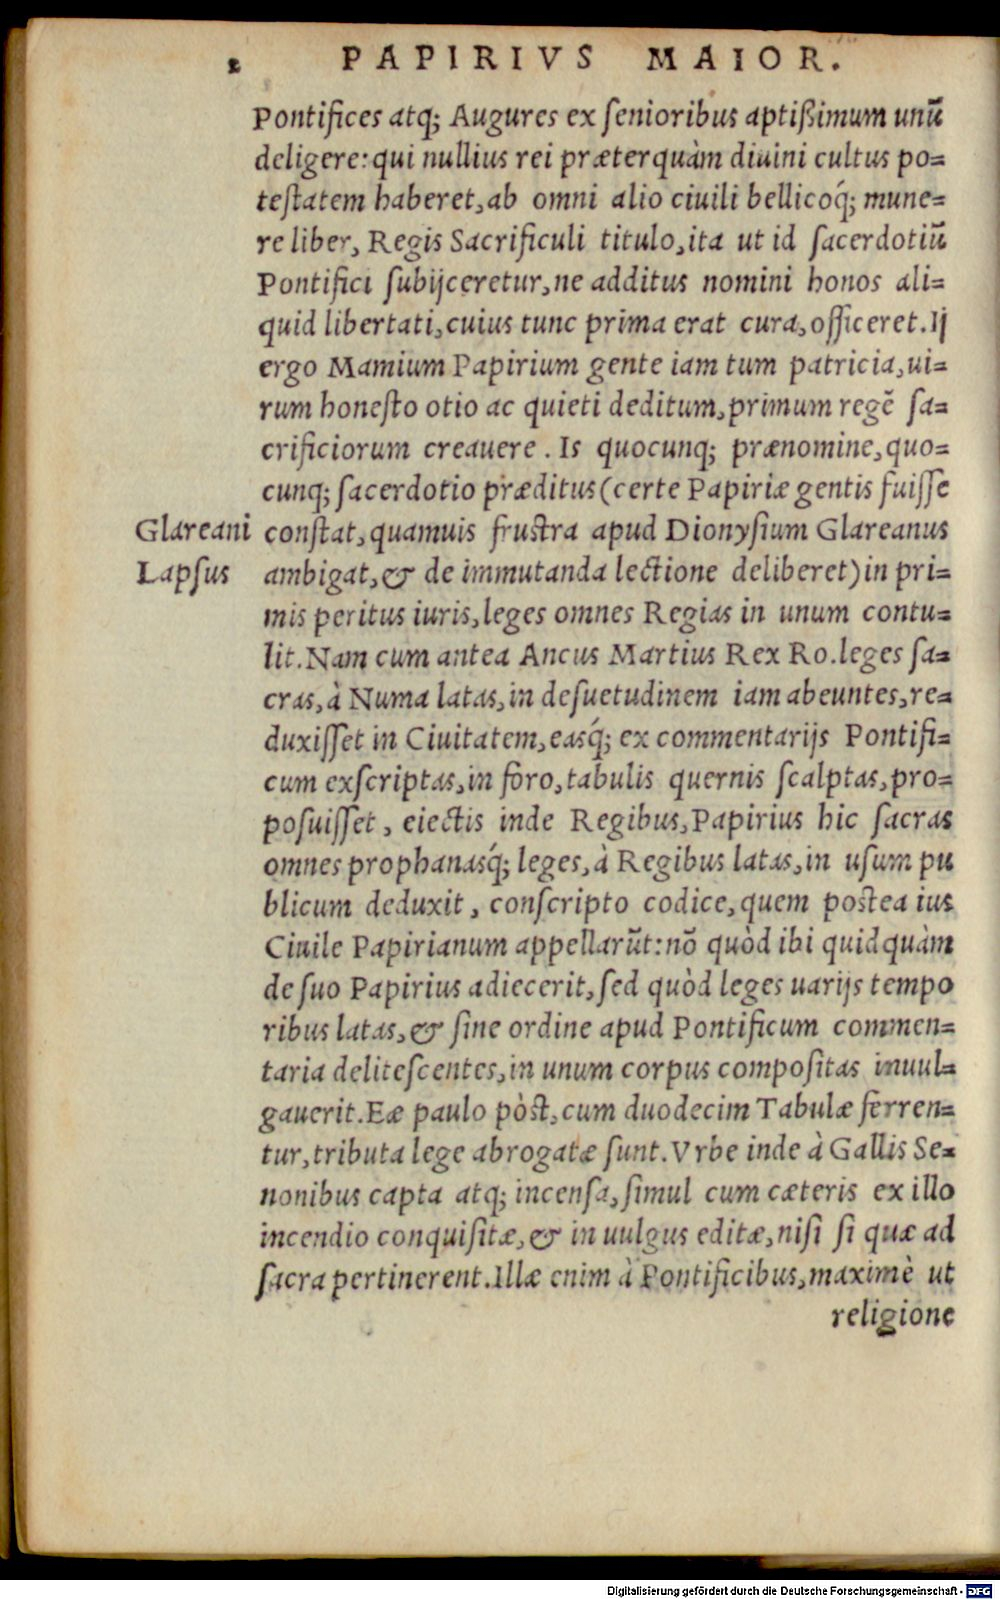 2 PAPIRIVS MAIOR.
Pontifices atq; Augures ex ſenioribus aptißimum unũ
deligere: qui nullius rei præterquàm diuini cultus po=
teſtatem haberet, ab omni alio ciuili bellicoq́; mune=
re liber, Regis Sacrificuli titulo, ita ut id ſacerdotiũ
Pontifici ſubijceretur, ne additus nomini honos ali=
quid libertati, cuius tunc prima erat cura, officeret. Ij
ergo Mamium Papirium gente iam tum patricia, ui=
rum honeſto otio ac quieti deditum, primum regẽ ſa=
crificiorum creauere. Is quocunq; prænomine, quo=
cunq; ſacerdotio præditus (certe Papiriæ gentis fuiſſe
Glareani conſtat, quamuis fruſtra apud Dionyſium Glareanus
Lapſus ambigat, & de immutanda lectione deliberet) in pri=
mis peritus iuris, leges omnes Regias in unum contu=
lit. Nam cum antea Ancus Martius Rex Ro. leges ſa=
cras, à Numa latas, in deſuetudinem iam abeuntes, re=
duxiſſet in Ciuitatem, easq́; ex commentarijs Pontifi=
cum exſcriptas, in foro, tabulis quernis ſcalptas, pro=
poſuiſſet, eiectis inde Regibus, Papirius hic ſacras
omnes prophanasq́; leges, à Regibus latas, in uſum pu
blicum deduxit, conſcripto codice, quem poſtea ius
Ciuile Papirianum appellarũt: nõ quòd ibi quidquàm
de ſuo Papirius adiecerit, ſed quòd leges uarijs tempo
ribus latas, & ſine ordine apud Pontificum commen=
taria deliteſcentes, in unum corpus compoſitas inuul=
gauerit. Eæ paulo pòſt, cum duodecim Tabulæ ferren=
tur, tributa lege abrogatæ ſunt. Vrbe inde à Gallis Se=
nonibus capta atq; incenſa, ſimul cum cæteris ex illo
incendio conquiſitæ, & in uulgus editæ, niſi ſi quæ ad
ſacra pertinerent. Illæ enim à Pontificibus, maximè ut
religione
Digitalisierung gefördert durch die Deutsche Forschungsgemeinschaft - DFG